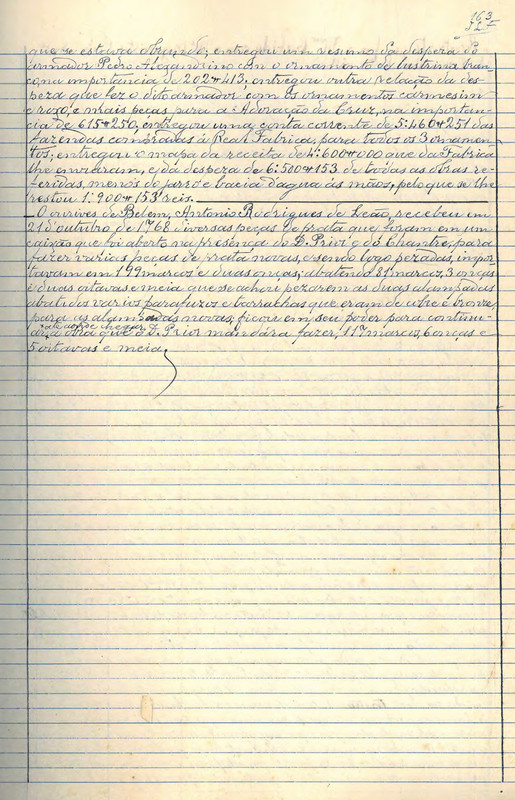 163
52
que se estava obrando; entregou um resumo da despeza do
armador Pedro Alexandrino com o ornamento de lustrina bran-
co, na importancia de 202#413; entregou outra relação da des-
peza que fez o dito armador, com os ornamentos carmesim
e roxo, e mais peças para a Adoração da Cruz, na importan-
cia de 615#250; entregou uma conta corrente de 5:460#251 das
fazendas compradas á Real Fabrica, para todos os 3 ornamen-
tos; entregou o mapa da receita de 4:600#000 que da Fabrica
lhe enviaram, e da despeza de 6:500#153 de todas as obras re-
feridas, menos do jarro e bacia d'agua ás mãos, pelo que se lhe
restou 1:900#153 reis.
O ourives de Belem, Antonio Rodrigues de Leão, recebeu em
21 d'outubro de 1768 diversas peças de prata que foram em um
caixão que foi aberto na presença do D. Prior e do Chantre, para
fazer varias peças de prata novas, e sendo logo pezadas, impor-
tavam em 199 marcos e duas onças; abatendo 81 marcos, 3 onças
e duas oitavas e meia que se achou pezarem as duas alampadas
abatidos varios parafuzos e borrachas que eram de cobre e bronze,
para as alampadas novas, ficou em seu poder para continu-
ar a obra que o D. Prior mandára fazer, 117 marcos, 6 onças e
5 oitavas e meia.